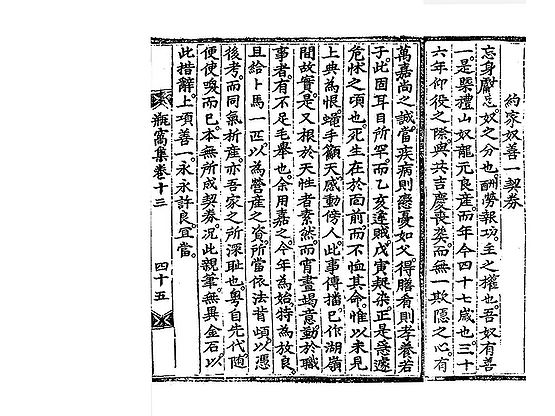 約家奴善一契券
忘身盡忠奴之分也酬勞報功主之權也吾奴有善
一是檗禮山奴龍元良産而年今四十七歲也三十
六年仰役之際與共吉慶喪葬而無一欺隱之心有
萬嘉尚之誠當疾病則憑憂如父得膳肴則孝養若
子此固耳目所罕而乙亥運賊戊寅疑染正是急遽
危怵之項也死生在於面前而不恤其命惟以未見
上典為恨蝢手顲天感動傍人此事傳播已作湖嶺
間故實是又根於天性者素然而宵晝竭意勤於職
事者有不足毛舉也余用嘉之今年為始特為放良
且給卜馬一匹以為營産之資所當依法背頌以憑
後考而同氣析産亦吾家之所深耻也粤自先代隨
便使喚而已本無所成契券況此親筆無異金石以
此措辭上項善一永永許良宜當
瓶窩集卷十三
四十五